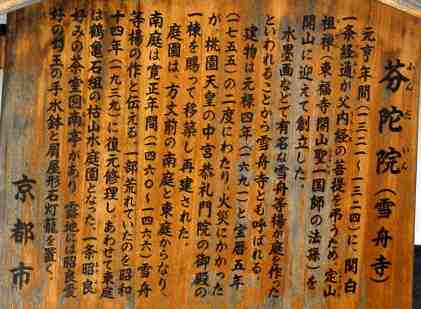 芬陀院（雪舟寺）
ふんだいん
元亨年間（一三二一―一三二四）に、関白
一条経通が父内経の菩提を弔うため、定山
祖禅（東福寺開山聖一国師の法孫）を
開山に迎えて創立した。
水墨画などで有名な雪舟等楊が庭を作った
といわれることから雪舟寺とも呼ばれる。
建物は元禄四年（一六九一）と宝暦五年
（一七五五）の二度にわたり、火災にかかった
が、桃園天皇の中宮恭礼門院の御殿の
一棟を賜って移築し再建された。
庭園は、方丈前の南庭と東庭からなり、
南庭は寛正年間（一四六〇―一四六六）雪舟
等楊の作と伝える。一部荒れていたのを昭和
十四年（一九三九）に復元修理し、あわせて東庭
は鶴亀石組の枯山水庭園となった。一条昭良
好みの茶室図南亭があり、露地には昭良愛
好の勾玉の手水鉢と屑屋形石灯籠を置く。
京都市